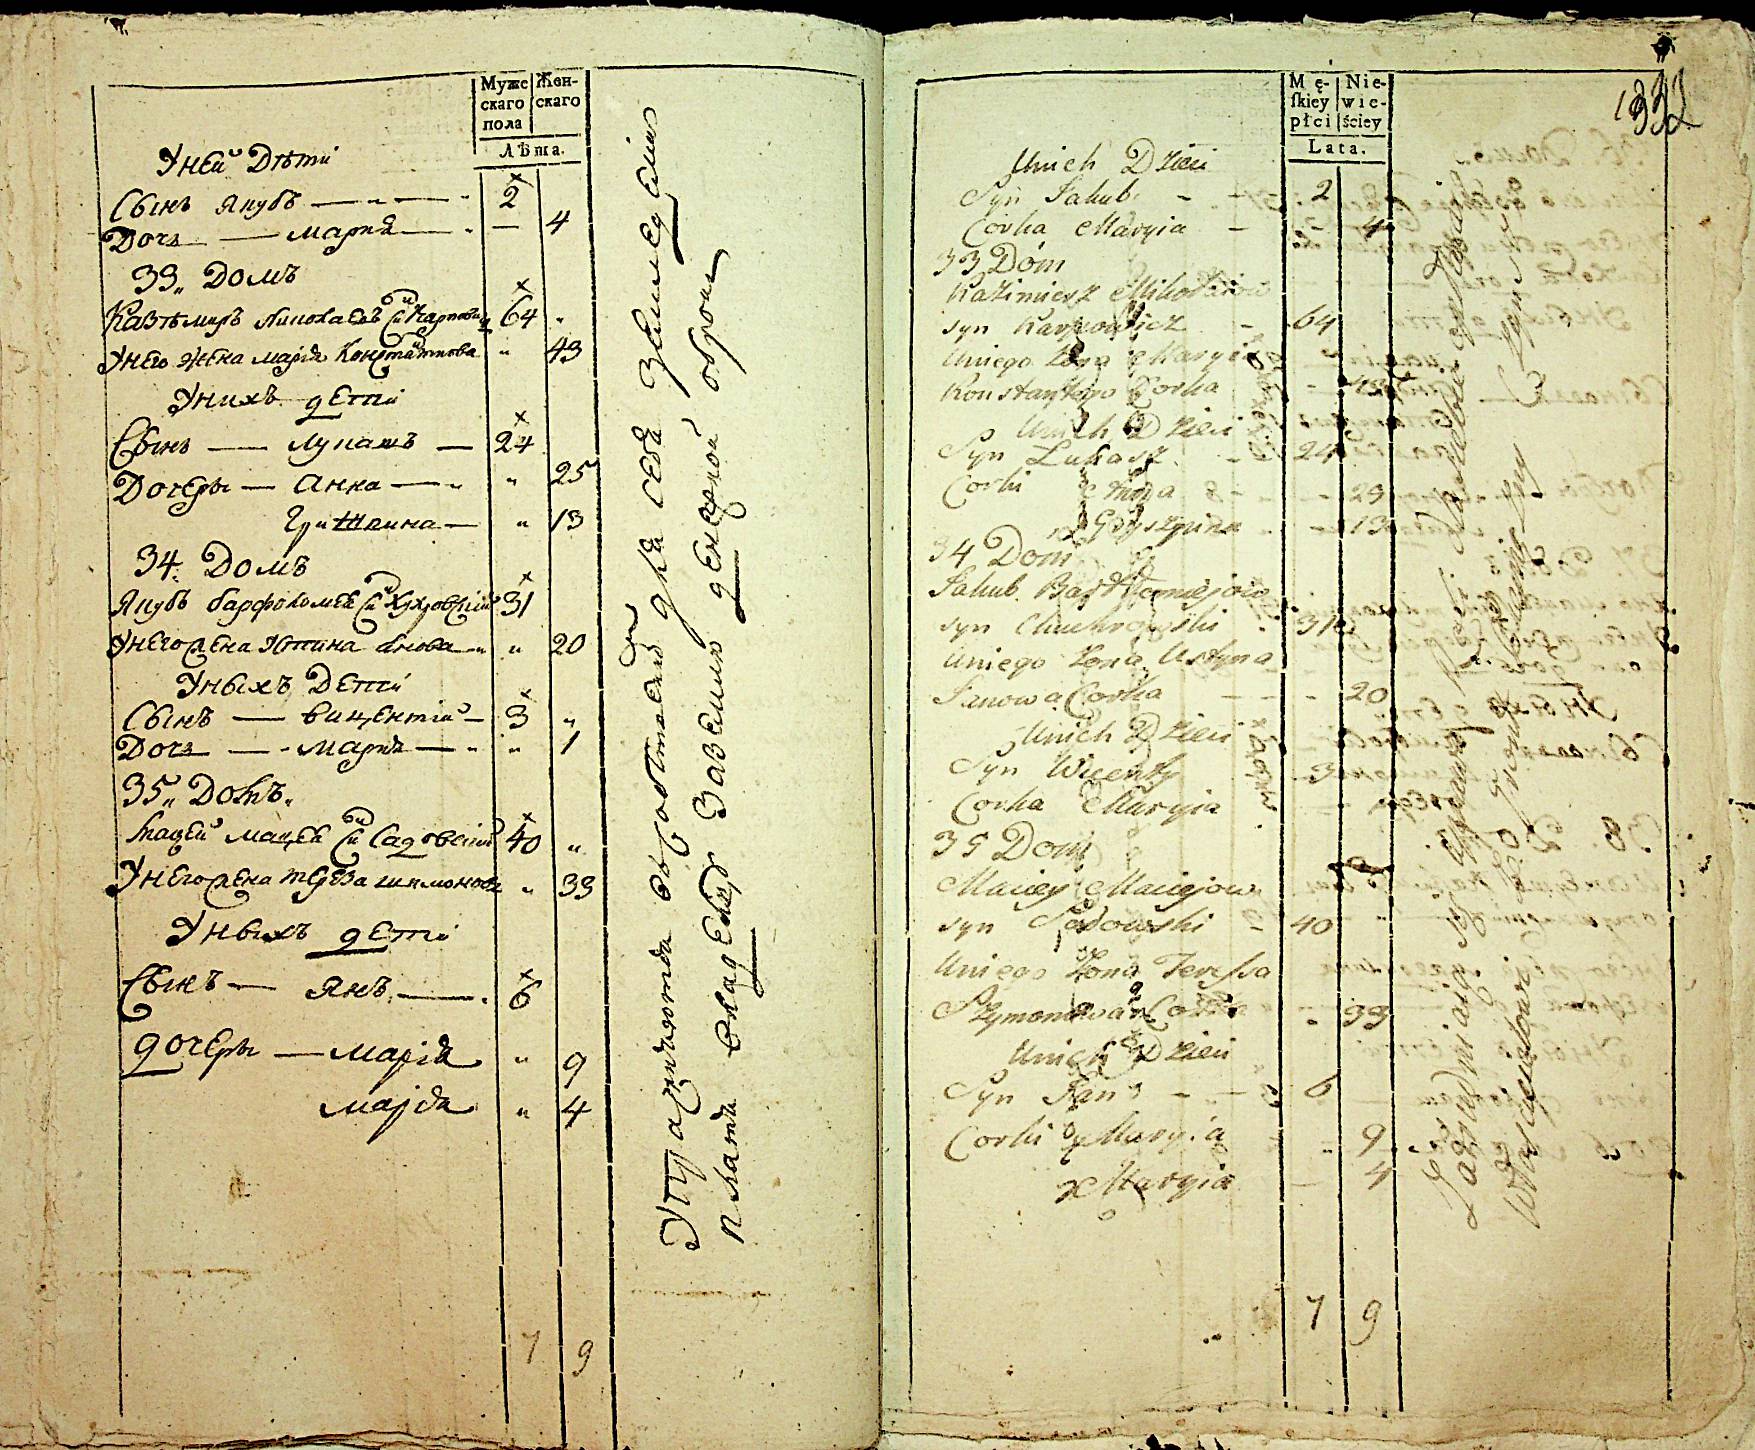 Муже
скаго
пола
Жен-
скаго
Лѣта.
Уней Дѣти
Сынъ Якубъ — „ — 2
Дочь — Марія — „ — 4
33„ Домъ
Казѣмиръ Николаевъ Сынъ Карповичъ 64 „
Унего жена Марія Константинова „ 43
Унихъ дети
Сынъ — Лукашъ — 24
Дочеры — Анна — „ „ 25
Гришпина — „ 13
34. Домъ
Якубъ Барфоломеевъ Сынъ Хухровскій 31
Унего жена Юстина Янова „ „ 20
Уныхъ Дети
Сынъ — Вицентій — 3 „
Дочь — „ Марія — „ „ 1
35„ Домъ„
Мацей Мацеевъ Сынъ Садовскій 40 „
Унего жена Тереза Шимонова „ 33
Уныхъ дети
Сынъ — Янъ — 6
дочеры — Марія „ 9
Марія „ 4
7 9
для себя Земледеліем
платя Владельцу За Землю денежной оброкъ
Mę-
ſkiey
płci
Nie-
wie-
ściey
Lata.
132
Unich Dzieci
Syn Jakub - - 2
Corka Maryia - - 4
33 Dom
Kazimierz Mikołaiow
syn Karpowicz - 64
Uniego Zona Maryia
Konstantego Corka - 43
Unich Dzieci
Syn Lukasz - 24
Corki Anna - - 25
Grysztyna - - 13
34 Dom
Jakub Bartłomiejow
syn Chuchrowski - 31
Uniego Zona Ustyna
Janowa Corka - - - 20
Unich Dzieci
Syn Wicenty - 3
Corka Maryia
35 Dom
Maciey Maciejow
syn Sadowski - 40
Uniego Zona Teressa
Szymonowa Corka „ 33
Unich Dzieci
Syn Jan - - 6
Corki Maryia „ 9
Maryia - 4
7 9